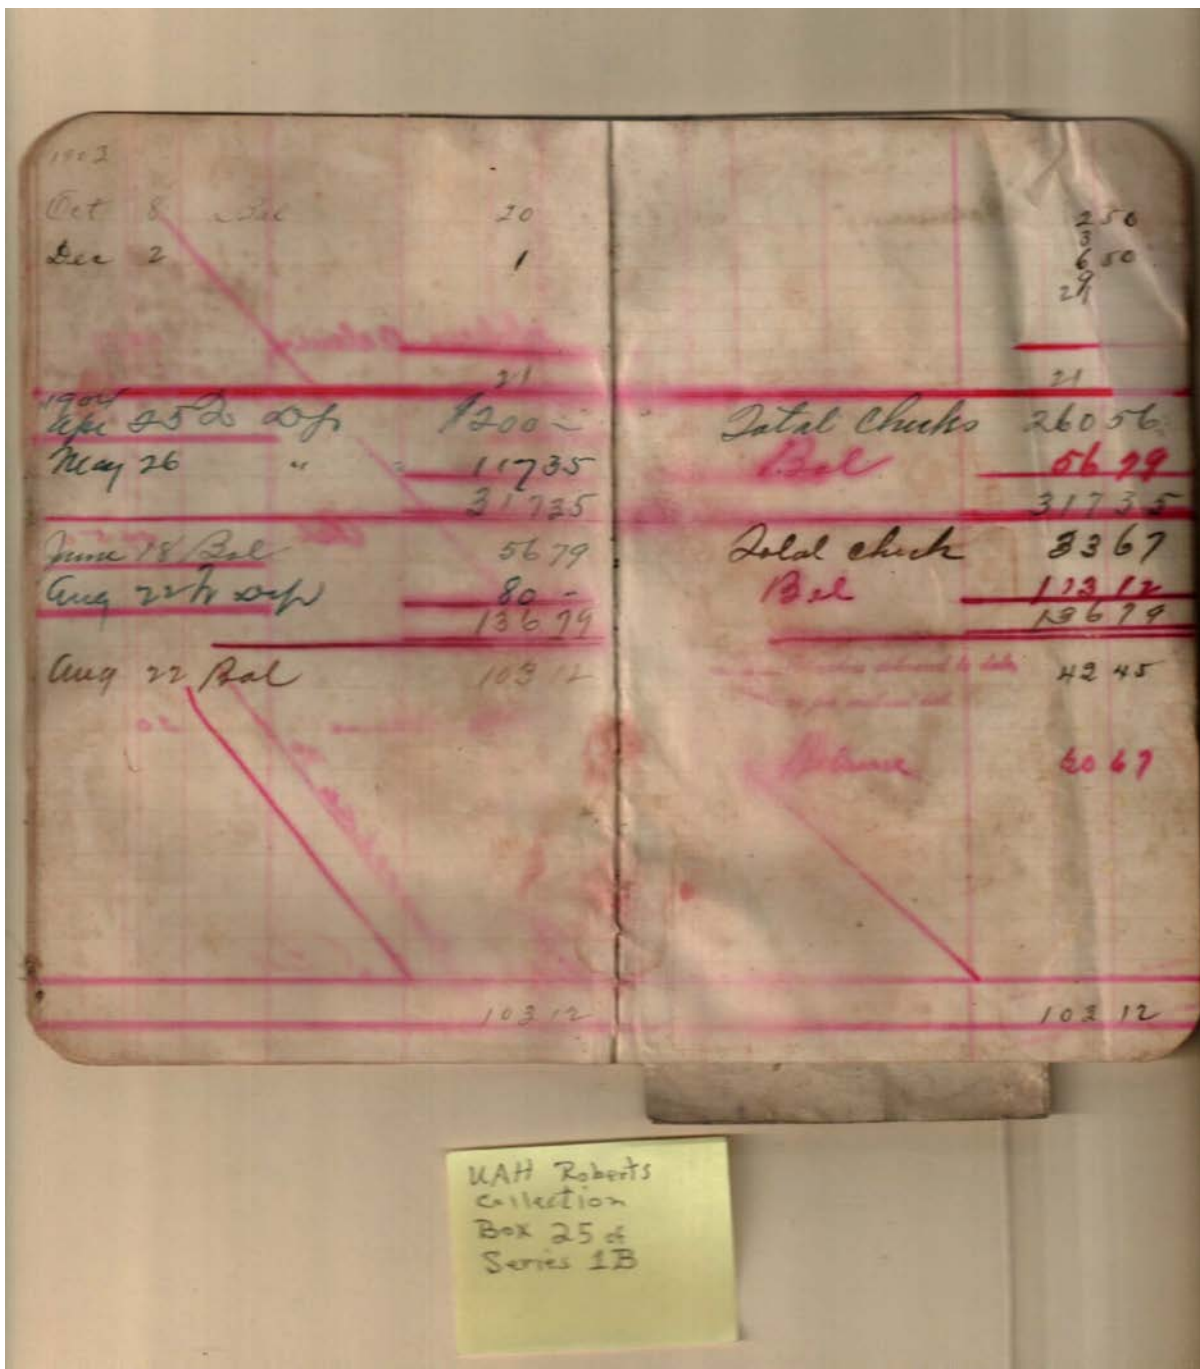 1903
Oct 8 Bal 20
Dec 2 1
21
1904
Apr 25 Dep $200 –
May 26 " " 117 35
317 35
June 18 Bal 56 79
Aug 22 Dep 80 -
136 79
Aug 22 Bal 103 12
103 12
2 50
3
6 50
9
21
21
Total Checks 260 56
Bal 56 79
317 35
Total check 33 67
Bal 103 12
136 79
to date 42 45
Balance 60 67
103 12
UAH Roberts
Collection
Box 25 of
Series 1B